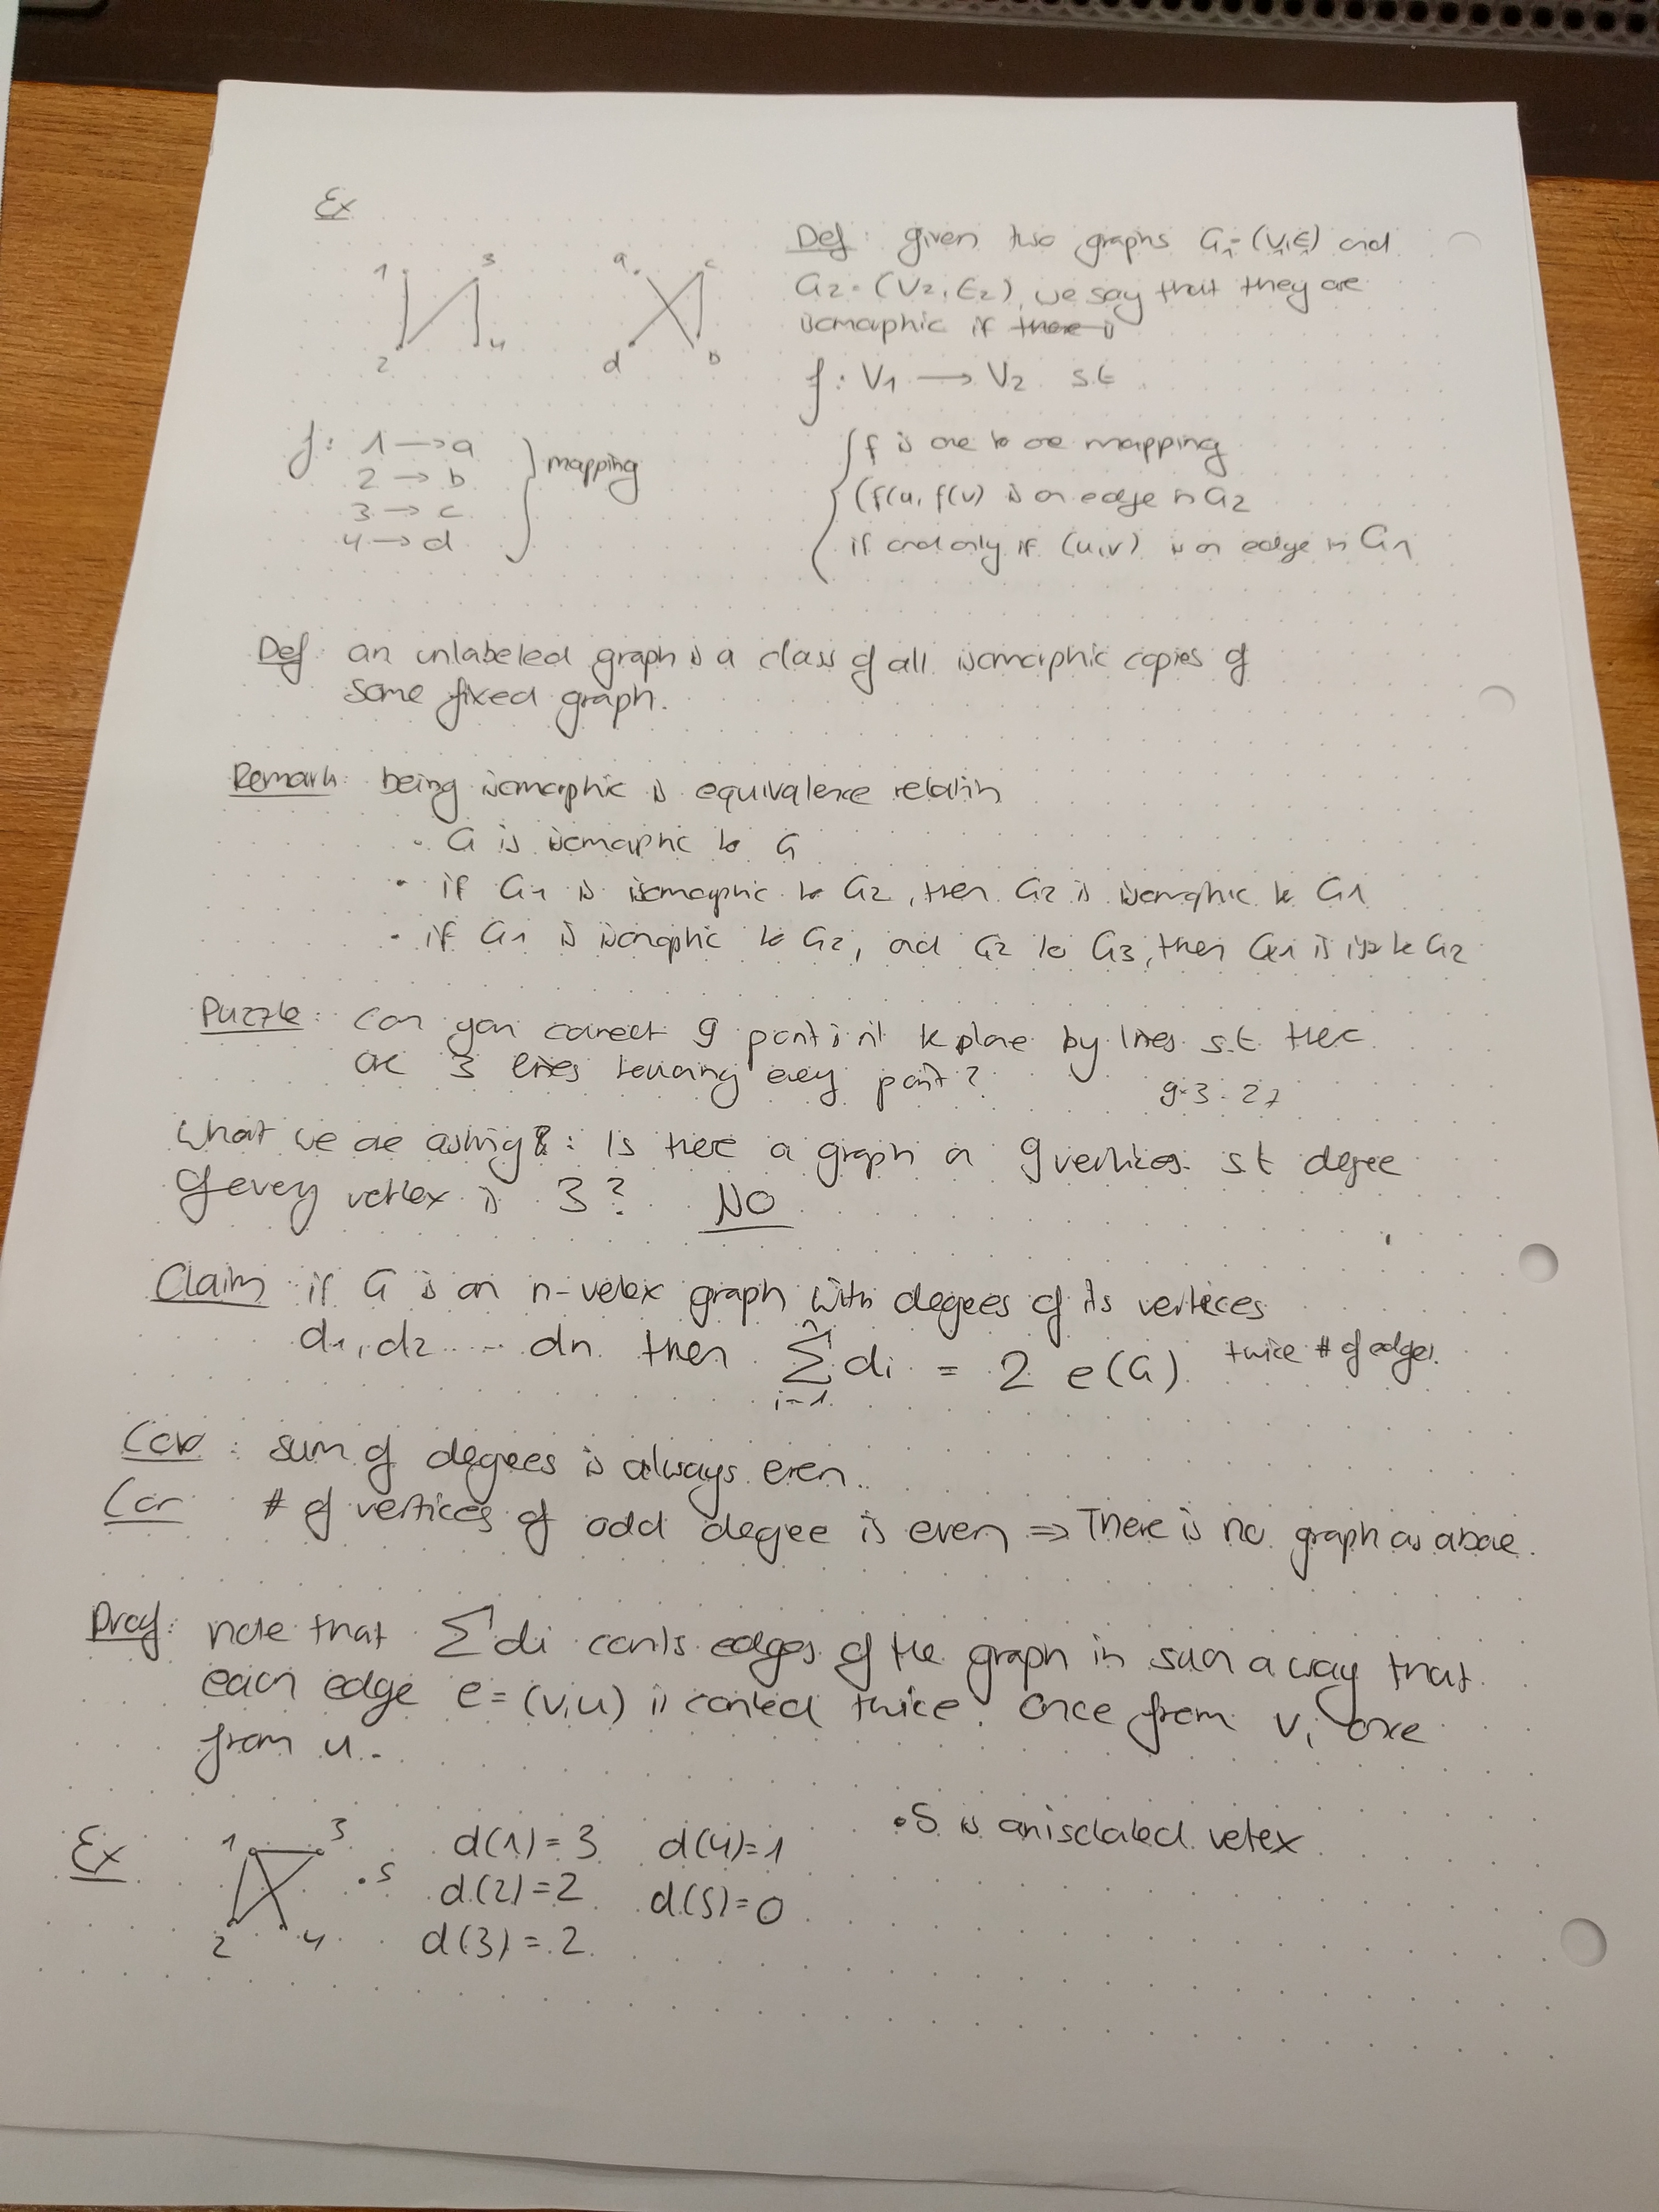 Ex
1 3
2 4
a c
d b
f: 1 → a
2 → b
3 → c
4 → d
mapping
Def: given two graphs G1 = (V1, E1) and
G2 = (V2, E2), we say that they are
isomorphic if there is
f: V1 → V2 s.t
f is one to one mapping
(f(u, f(v) is an edge in G2
if and only if (u,v) is an edge in G1
Def: an unlabeled graph is a class of all isomorphic copies of
some fixed graph.
Remark: being isomorphic is equivalence relation
• G is isomorphic to G
• if G1 is isomorphic to G2, then G2 is isomorphic to G1
• if G1 is isomorphic to G2, and G2 to G3, then G1 is iso to G2
Puzzle: can you connect 9 points in the plane by lines s.t there
are 3 lines touching every point?
9·3 = 27
What we are asking: Is there a graph on 9 vertices s t degree
of every vertex is 3? NO
Claim if G is an n-vertex graph with degrees of its vertices
d1, d2 ... dn then ∑_{i=1}^{n} di = 2 e(G) twice # of edges.
Cor: sum of degrees is always even.
Cor # of vertices of odd degree is even ⇒ There is no graph as above.
Proof: note that ∑ di counts edges of the graph in such a way that
each edge e = (v,u) is counted twice. once from v, once
from u.
Ex
1 3
2 4
•5
d(1) = 3 d(4) = 1
d(2) = 2 d(5) = 0
d(3) = 2
•5 is an isolated vertex